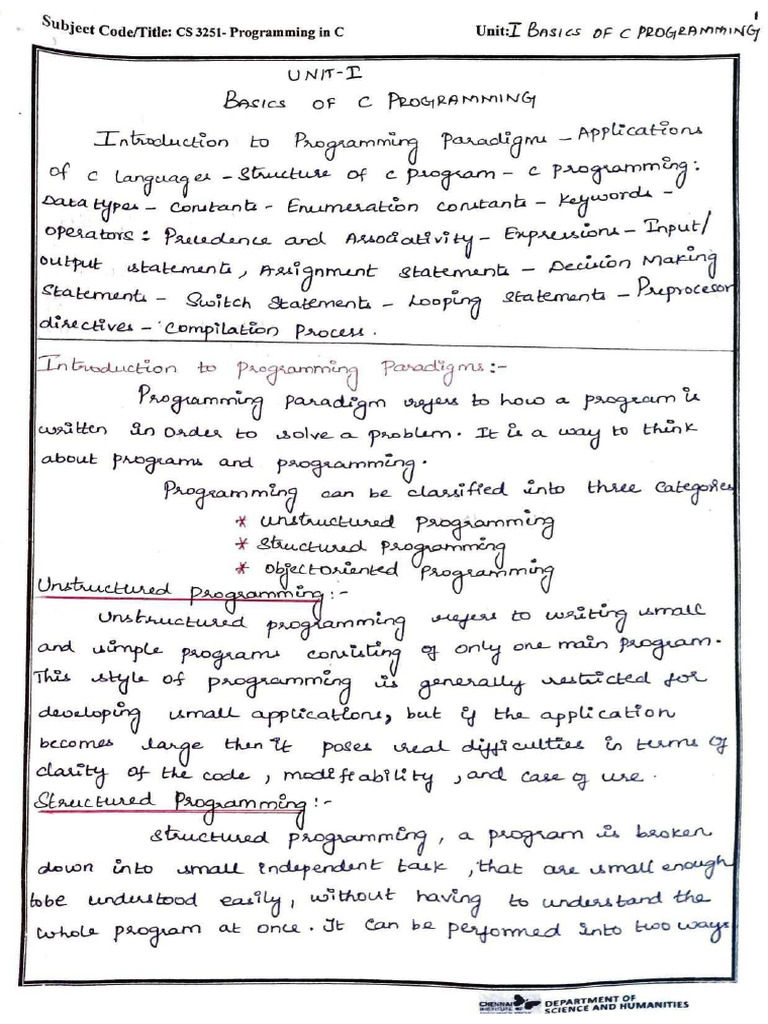 Subject Code/Title: CS 3251- Programming in C Unit: I BASICS OF C PROGRAMMING
1
UNIT-I
BASICS OF C PROGRAMMING
Introduction to Programming Paradigms - Applications
of C Languages - Structure of C program - C programming:
Data types - Constants - Enumeration constants - Keywords -
operators: Precedence and Associativity - Expressions - Input/
output statements, Assignment statements - Decision Making
Statements - Switch Statements - Looping Statements - Preprocesor
directives - Compilation Process.
Introduction to programming Paradigms:-
Programming paradigm refers to how a program is
written in order to solve a problem. It is a way to think
about programs and programming.
Programming can be classified into three categories
* Unstructured programming
* Structured programming
* Object oriented programming
Unstructured programming:-
Unstructured programming refers to writing small
and simple programs consisting of only one main program.
This style of programming is generally restricted for
developing small applications, but if the application
becomes large then it poses real difficulties in terms of
clarity of the code, modifiability, and ease of use.
Structured Programming:-
Structured programming, a program is broken
down into small independent task, that are small enough
tobe understood easily, without having to understand the
whole program at once. It can be performed into two ways
CHENNAI
INSTITUTE
DEPARTMENT OF
SCIENCE AND HUMANITIES